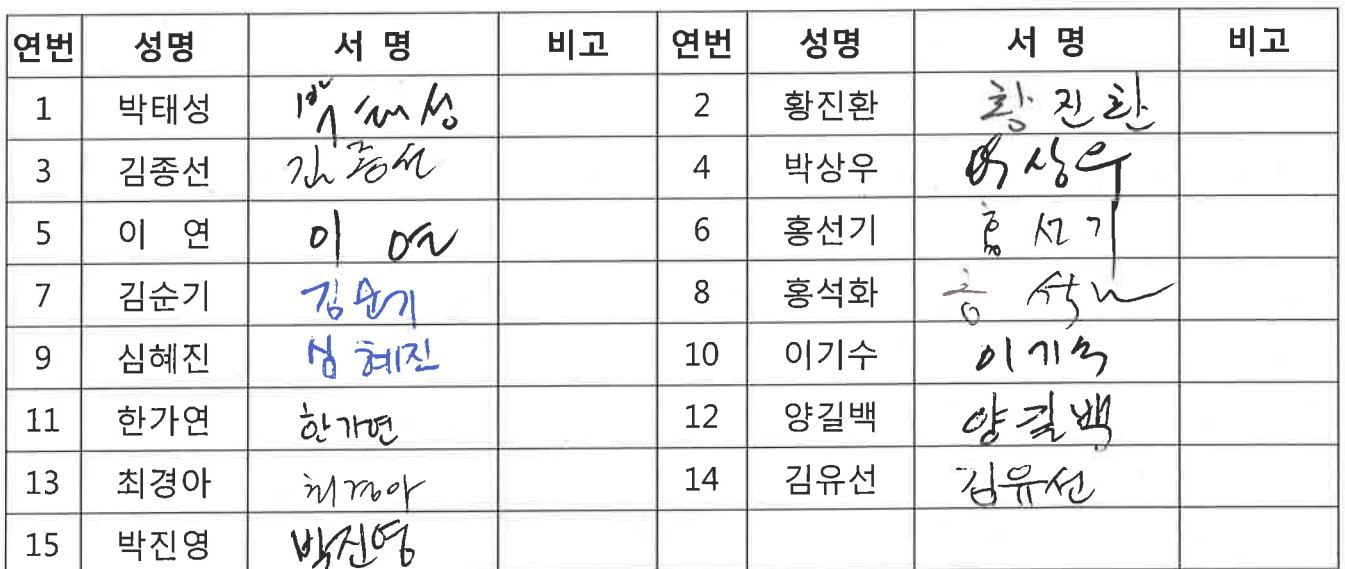 연번 성명 서 명 비고 연번 성명 서 명 비고
1 박태성 박태성 2 황진환 황진환
3 김종선 김종선 4 박상우 박상우
5 이 연 이 연 6 홍선기 홍선기
7 김순기 김순기 8 홍석화 홍석화
9 심혜진 심혜진 10 이기수 이기수
11 한가연 한가연 12 양길백 양길백
13 최경아 최경아 14 김유선 김유선
15 박진영 박진영